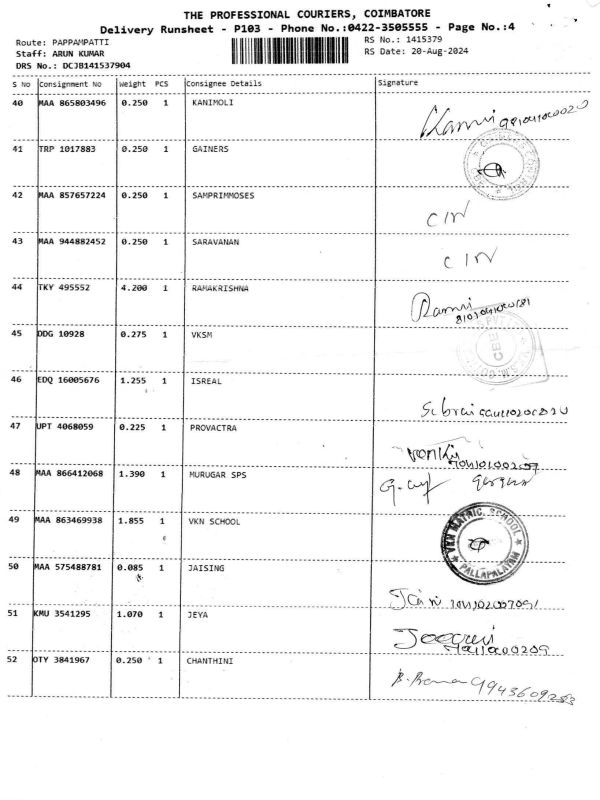 THE PROFESSIONAL COURIERS, COIMBATORE
Delivery Runsheet - P103 - Phone No.:0422-3505555 - Page No.:4
Route: PAPPAMPATTI
RS No.: 1415379
Staff: ARUN KUMAR
RS Date: 20-Aug-2024
DRS No.: DCJB141537904
S No Consignment No Weight PCS Consignee Details Signature
40 MAA 865803496 0.250 1 KANIMOLI
41 TRP 1017883 0.250 1 GAINERS
42 MAA 857657224 0.250 1 SAMPRIMMOSES
CIN
43 MAA 944882452 0.250 1 SARAVANAN
CIN
44 TKY 495552 4.200 1 RAMAKRISHNA
45 DDG 10928 0.275 1 VKSM
CEE
46 EDQ 16005676 1.255 1 ISREAL
47 UPT 4068059 0.225 1 PROVACTRA
48 MAA 866412068 1.390 1 MURUGAR SPS
49 MAA 863469938 1.855 1 VKN SCHOOL
VKN MATRIC. SCHOOL
PALLAPALAYAM
50 MAA 575488781 0.085 1 JAISING
51 KMU 3541295 1.070 1 JEYA
52 OTY 3841967 0.250 1 CHANTHINI